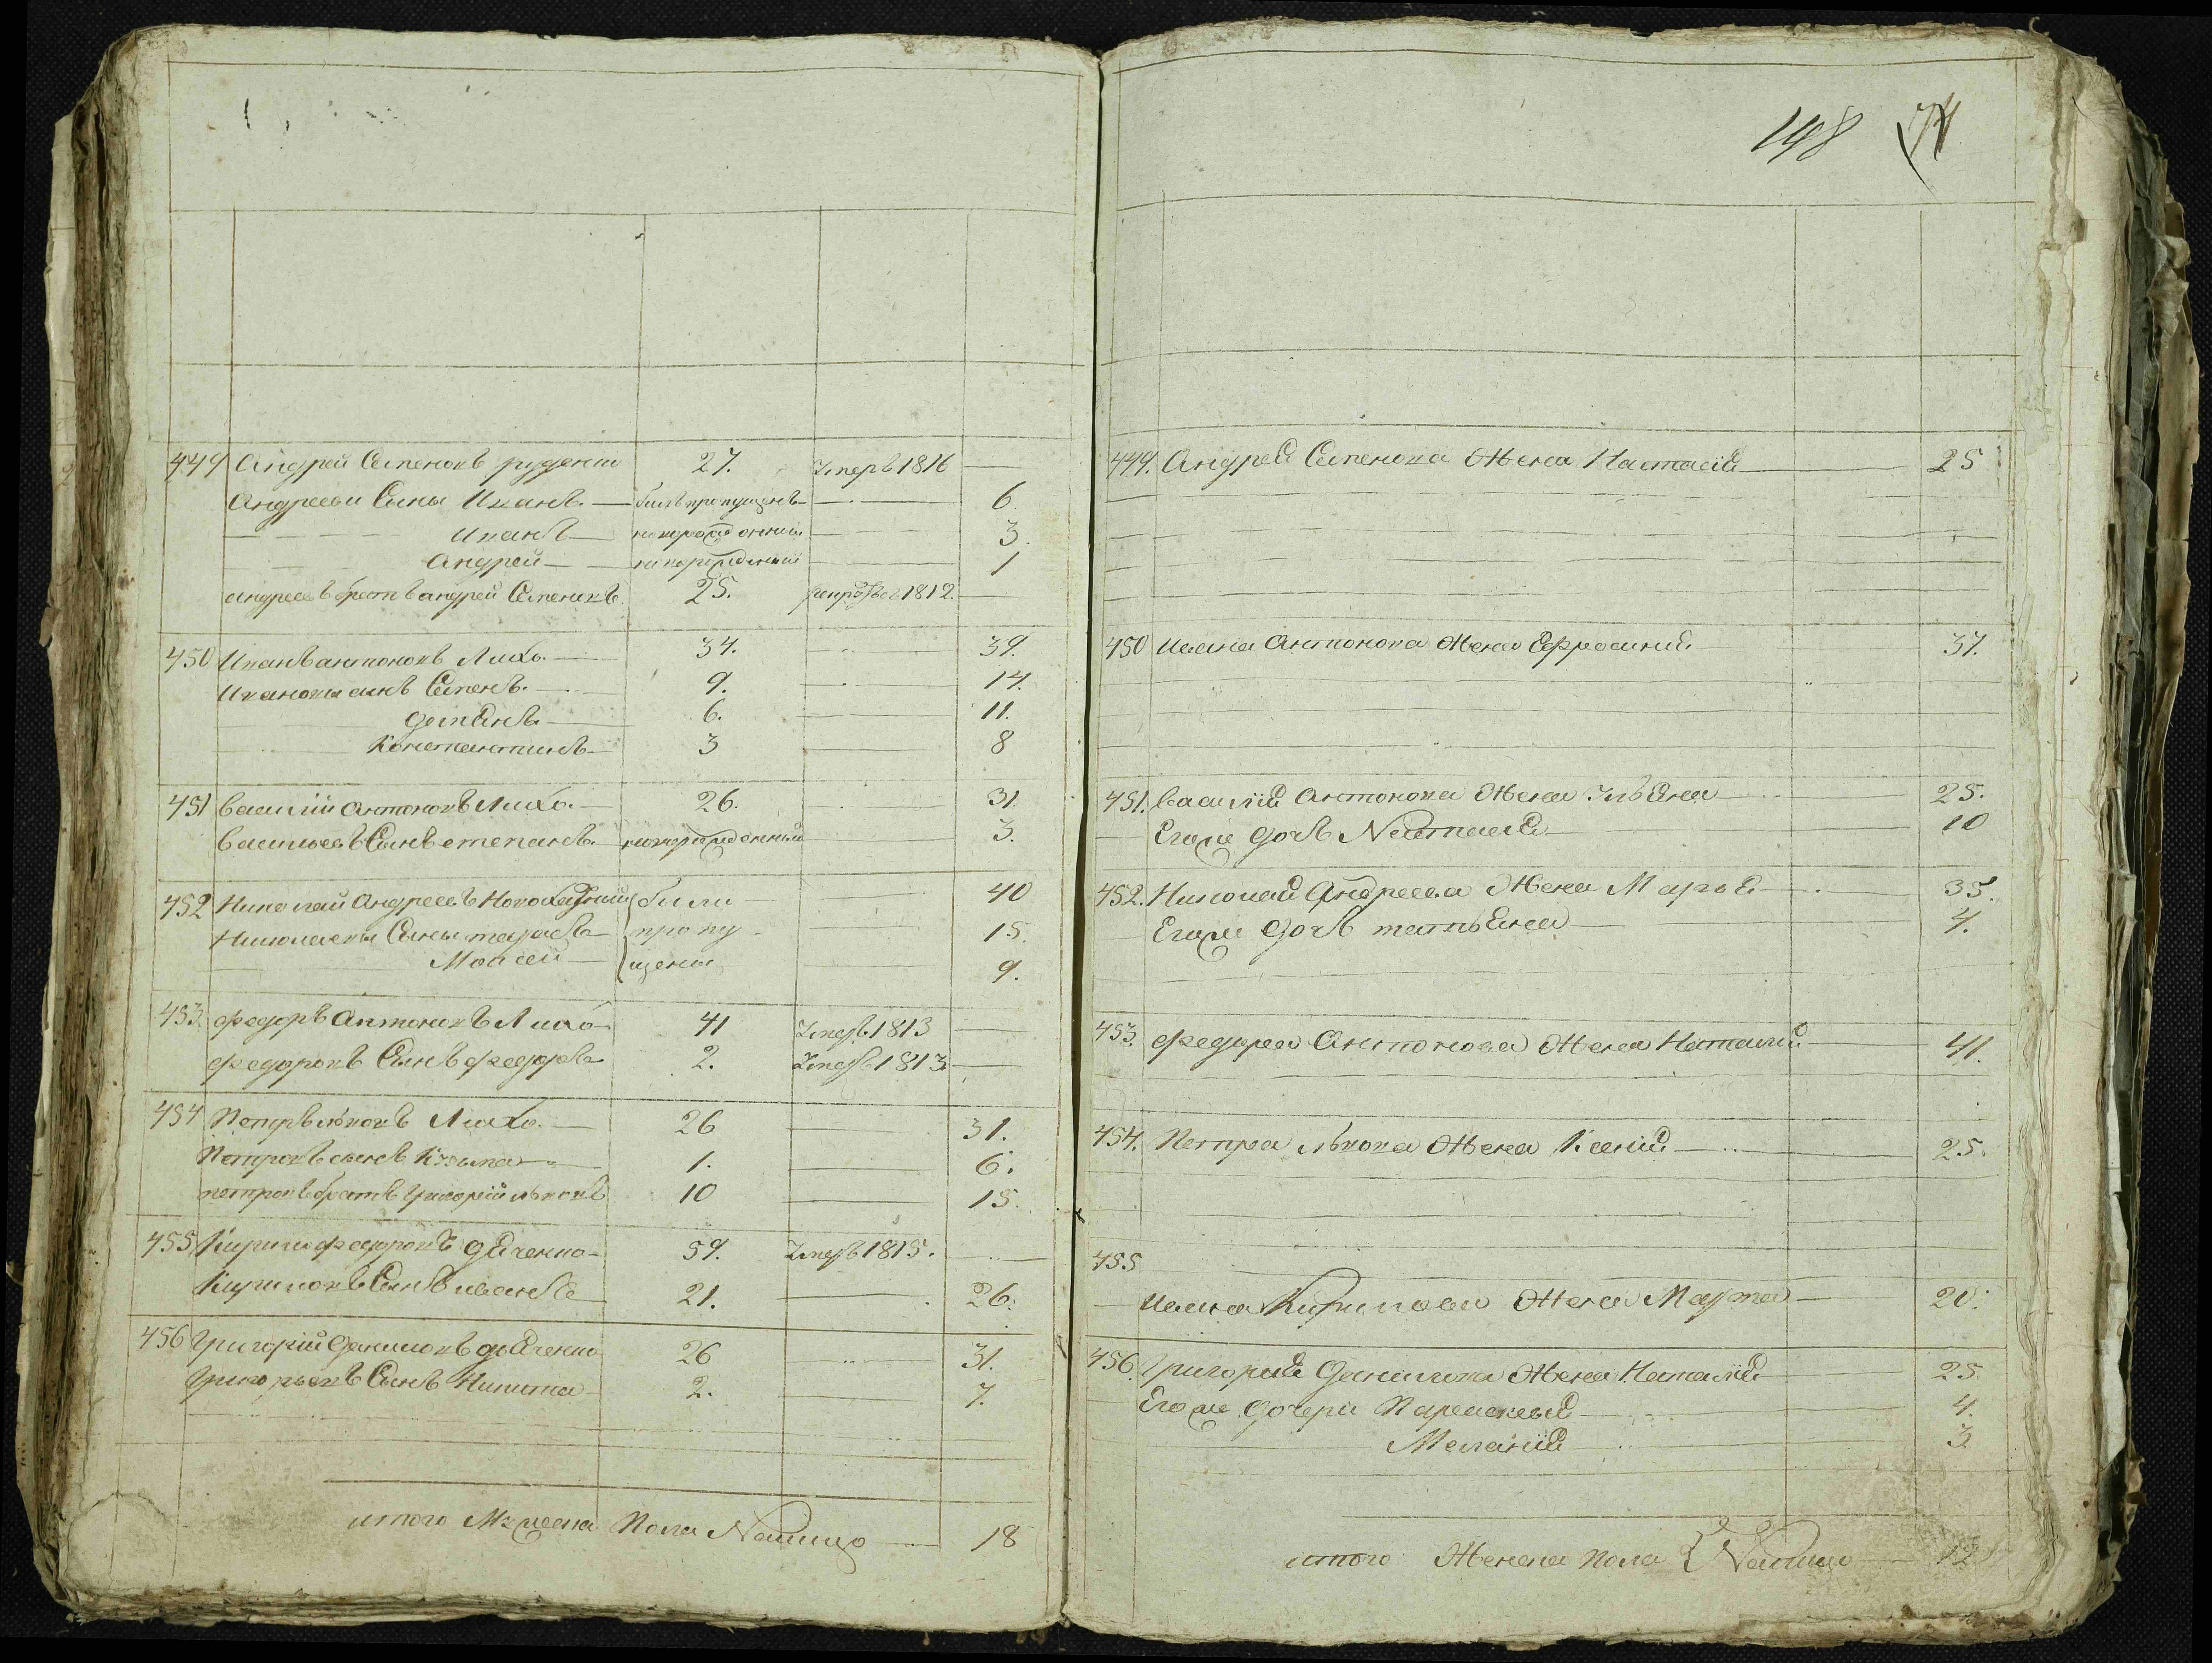 449 Андрей Семеновъ руденко 27. Умеръ 1816
Андреевы Сыны Иванъ былъ пропущенъ 6.
Иванъ новорожденный 3.
Андрей новорожденный 1
андреевъ братъ андрей Семеновъ 25. 1812.
450 Иванъ антоновъ Лихо. 34. 39.
Ивановы сынъ Семенъ. 9. 14.
демЕнъ 6. 11.
Константинъ 3 8
451 василій антоновъ Лихо. 26. 31.
васильевъ Сынъ степанъ новорожденный 3.
452 Николай Андреевъ были 40
Николаевы Сыны тарасъ пропу 15.
Моисей щены 9.
453. федоръ Антоновъ Лихо 41 Умеръ 1813
федоровъ Сынъ федоръ 2. Умеръ 1813
454 Петръ львовъ Лихо. 26 31.
Петровъ сынъ Кузьма 1. 6.
петровъ братъ григорій львовъ 10 15.
455 Кирило федоровъ дяченко 59. Умеръ 1815.
Кириловъ Сынъ иванъ 21. 26.
456 Григорій Даниловъ дяченко 26 31.
Григорьевъ Сынъ Никита 2. 7.
итого Мужеска Пола Налицо 18
198 74
449. Андрея Семенова Жена Настасія 25
450 ивана Антонова Жена Ефросинія 37.
451. василія Антонова Жена Ульяна 25.
Егоже дочь Настасія 10
452. Николая Андреева Жена Марья 35.
Егоже дочь татьяна 4.
453. федора Антонова Жена Наталия 41.
454. Петра львова Жена Ксенія 25.
455
ивана Кирилова Жена Марта 20.
456. Григорія Данилова Жена Наталія 25.
Егоже дочери Параскевія 4.
Меланія 3.
итого Женска пола Налицо 12